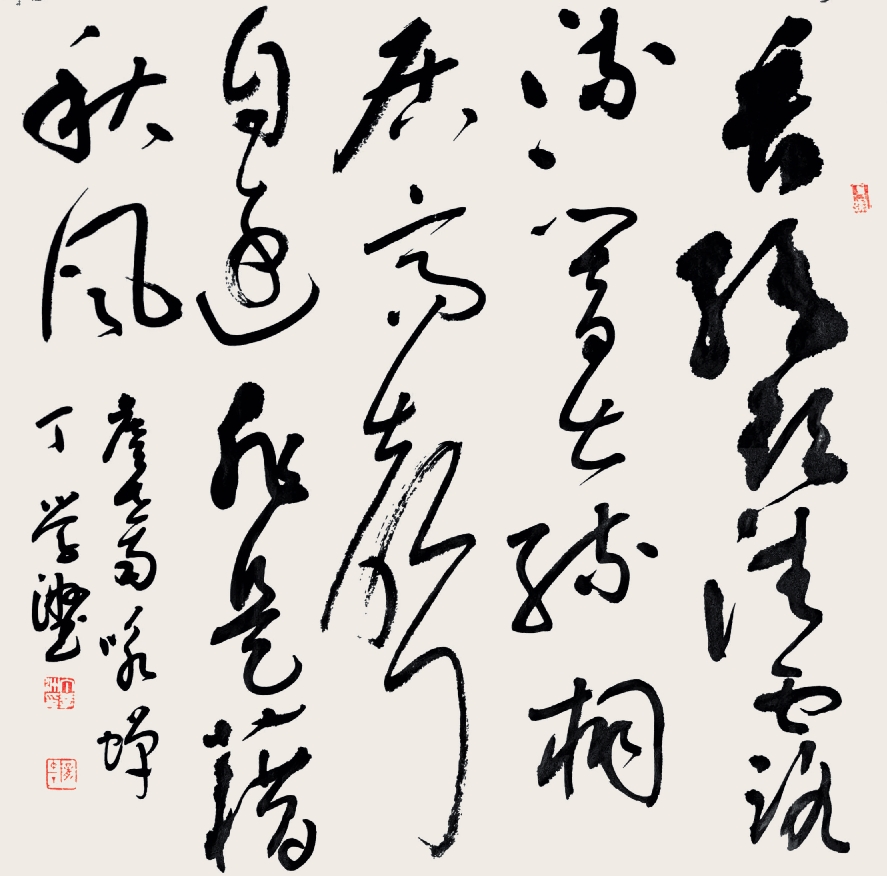 垂緌飲清露
流響出疏桐
居高聲
自遠非是藉
秋風
虞世南咏蝉
丁学